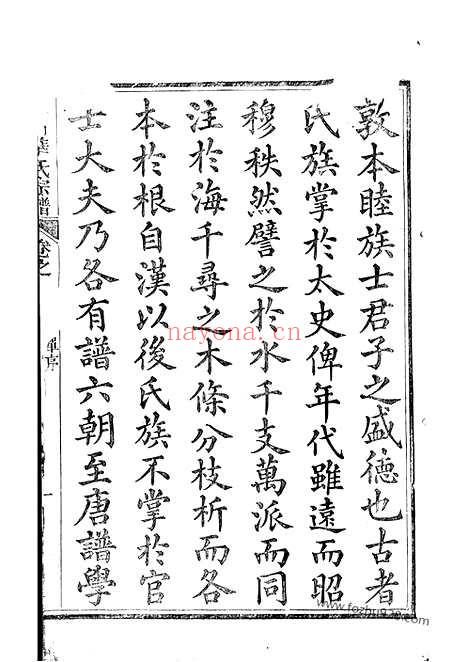 敦本睦族士君子之盛德也古者
氏族掌於太史俾年代雖遠而昭
穆秩然譬之於水千支萬派而同
注於海千尋之木條分枝析而各
本於根自漢以後氏族不掌於官
士大夫乃各有譜六朝至唐譜學
氏宗譜
卷之一
序
一
nayona.cn
www.fozhu920.com